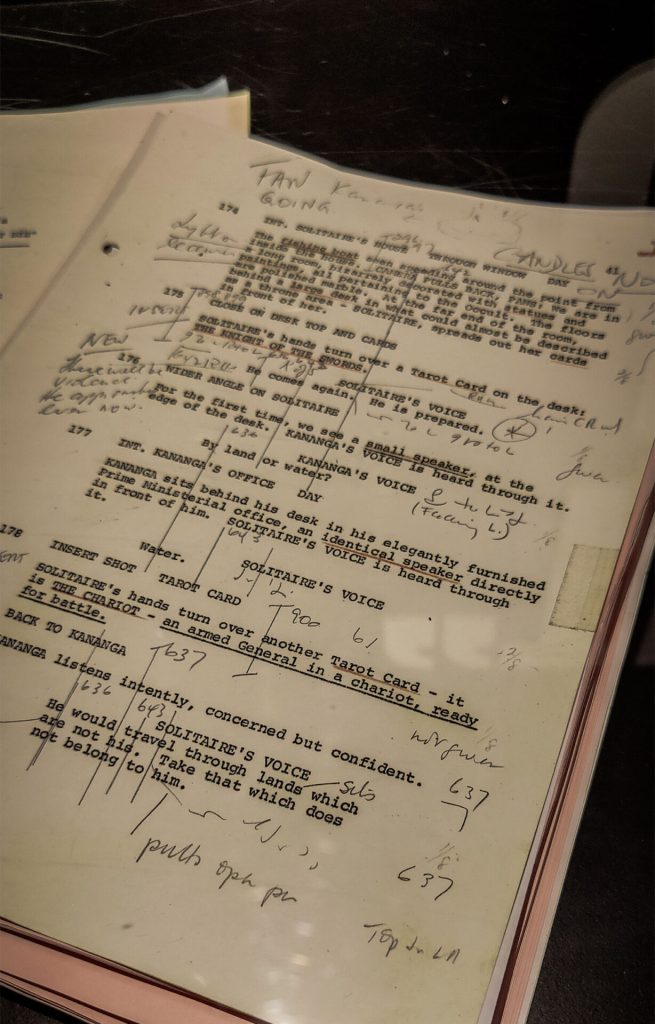 FAN Kananga
GOING
CANDLES
ON
174 INT. SOLITAIRE'S HOUSE THROUGH WINDOW DAY 41
The fishing boat seen speeding around the point from
inside the house. CAMERA PULLS BACK, PANS; we are in
a long room, bizarrely decorated with statues and
paintings, all pertaining to the Occult. The floors
are polished marble. At the far end of the room,
behind a large desk in what could almost be described
as a throne area - SOLITAIRE, spreads out her cards
in front of her.
175 CLOSE ON DESK TOP AND CARDS
INSERT
SOLITAIRE's hands turn over a Tarot Card on the desk:
THE KNIGHT OF THE SWORDS.
NEW
There will be
violence
SOLITAIRE'S VOICE
He comes again. He is prepared.
176 WIDER ANGLE ON SOLITAIRE
For the first time, we see a small speaker, at the
edge of the desk. KANANGA'S VOICE is heard through it.
636
KANANGA'S VOICE
By land or water?
(Facing L.)
177 INT. KANANGA'S OFFICE DAY
KANANGA sits behind his desk in his elegantly furnished
Prime Ministerial office, an identical speaker directly
in front of him. SOLITAIRE'S VOICE is heard through
it.
643
SOLITAIRE'S VOICE
Water.
178 INSERT SHOT TAROT CARD
T900 61
SOLITAIRE's hands turn over another Tarot Card - it
is THE CHARIOT - an armed General in a chariot, ready
for battle.
BACK TO KANANGA
T637
KANANGA listens intently, concerned but confident.
636 643
637
SOLITAIRE'S VOICE
He would travel through lands which
are not his. Take that which does
not belong to him.
637
pulls open